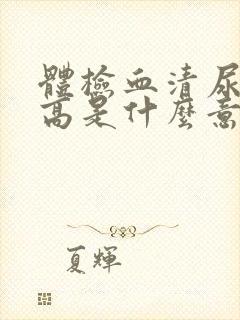 體檢血清尿
高是什麼意
夏輝